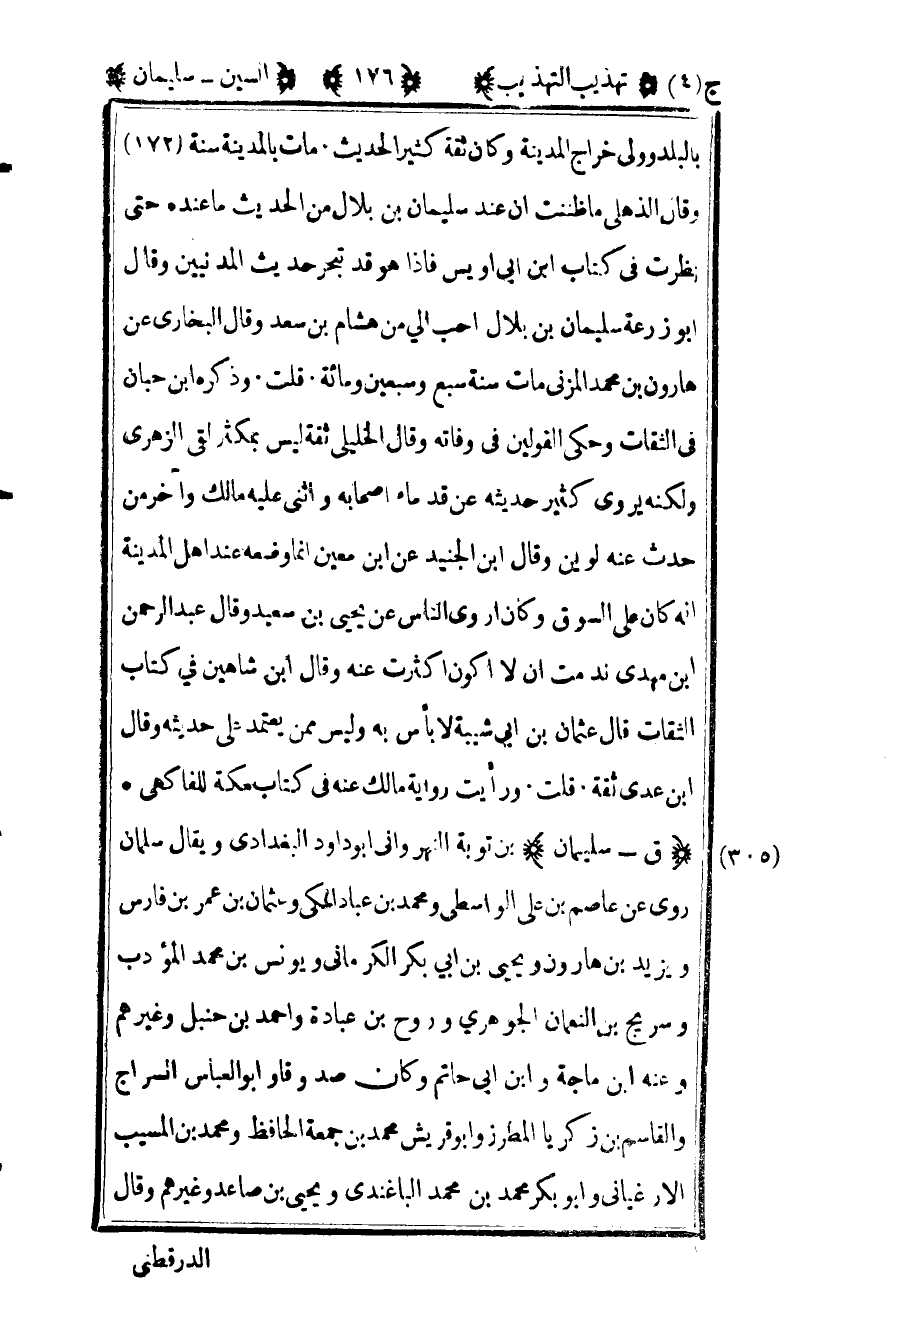 ج(٤) ﴿ تهذيب التهذيب ﴾ ﴿ ١٧٦ ﴾ ﴿ السين ـ سليمان ﴾
بالبلد وولى خراج المدينة وكان ثقة كثير الحديث · مات بالمدينة سنة (١٧٢)
وقال الذهلى ماظننت ان عند سليمان بن بلال من الحديث ماعنده حتى
نظرت فى كتاب ابن ابى اويس فاذا هو قد تبحر حديث المدنيين وقال
ابو زرعة سليمان بن بلال احب الي من هشام بن سعد وقال البخارى عن
هارون بن محمد المزنى مات سنة سبع وسبعين ومائة · قلت · وذكره ابن حبان
فى الثقات وحكى القولين فى وفاته وقال الخليلى ثقة ليس بمكثر لقى الزهرى
ولكنه يروى كثير حديثه عن قدماء اصحابه واثنى عليه مالك وآخر من
حدث عنه لوين وقال ابن الجنيد عن ابن معين انما وضعه عند اهل المدينة
انه كان على السوق وكان اروى الناس عن يحيى بن سعيد وقال عبد الرحمن
ابن مهدى ندمت ان لا اكون اكثرت عنه وقال ابن شاهين في كتاب
الثقات قال عثمان بن ابي شيبة لا بأس به وليس ممن يعتمد على حديثه وقال
ابن عدى ثقة · قلت · ورأيت رواية مالك عنه فى كتاب مكة للفاكهى •
(٣٠٥) ﴿ ق ـ سليمان ﴾ بن توبة النهروانى ابوداود البغدادى ويقال سلمان
روى عن عاصم بن على الواسطى ومحمد بن عباد المكى وعثمان بن عمر بن فارس
ويزيد بن هارون ويحيى بن ابي بكر الكرمانى ويونس بن محمد المؤدب
وسريج بن النعمان الجوهري وروح بن عبادة واحمد بن حنبل وغيرهم
وعنه ابن ماجة وابن ابى حاتم وكان صدوقاو ابوالعباس السراج
والقاسم بن زكريا المطرز وابوقريش محمد بن جمعة الحافظ ومحمد بن المسيب
الارغيانى وابو بكر محمد بن محمد الباغندى ويحيى بن صاعد وغيرهم وقال
الدرقطنى